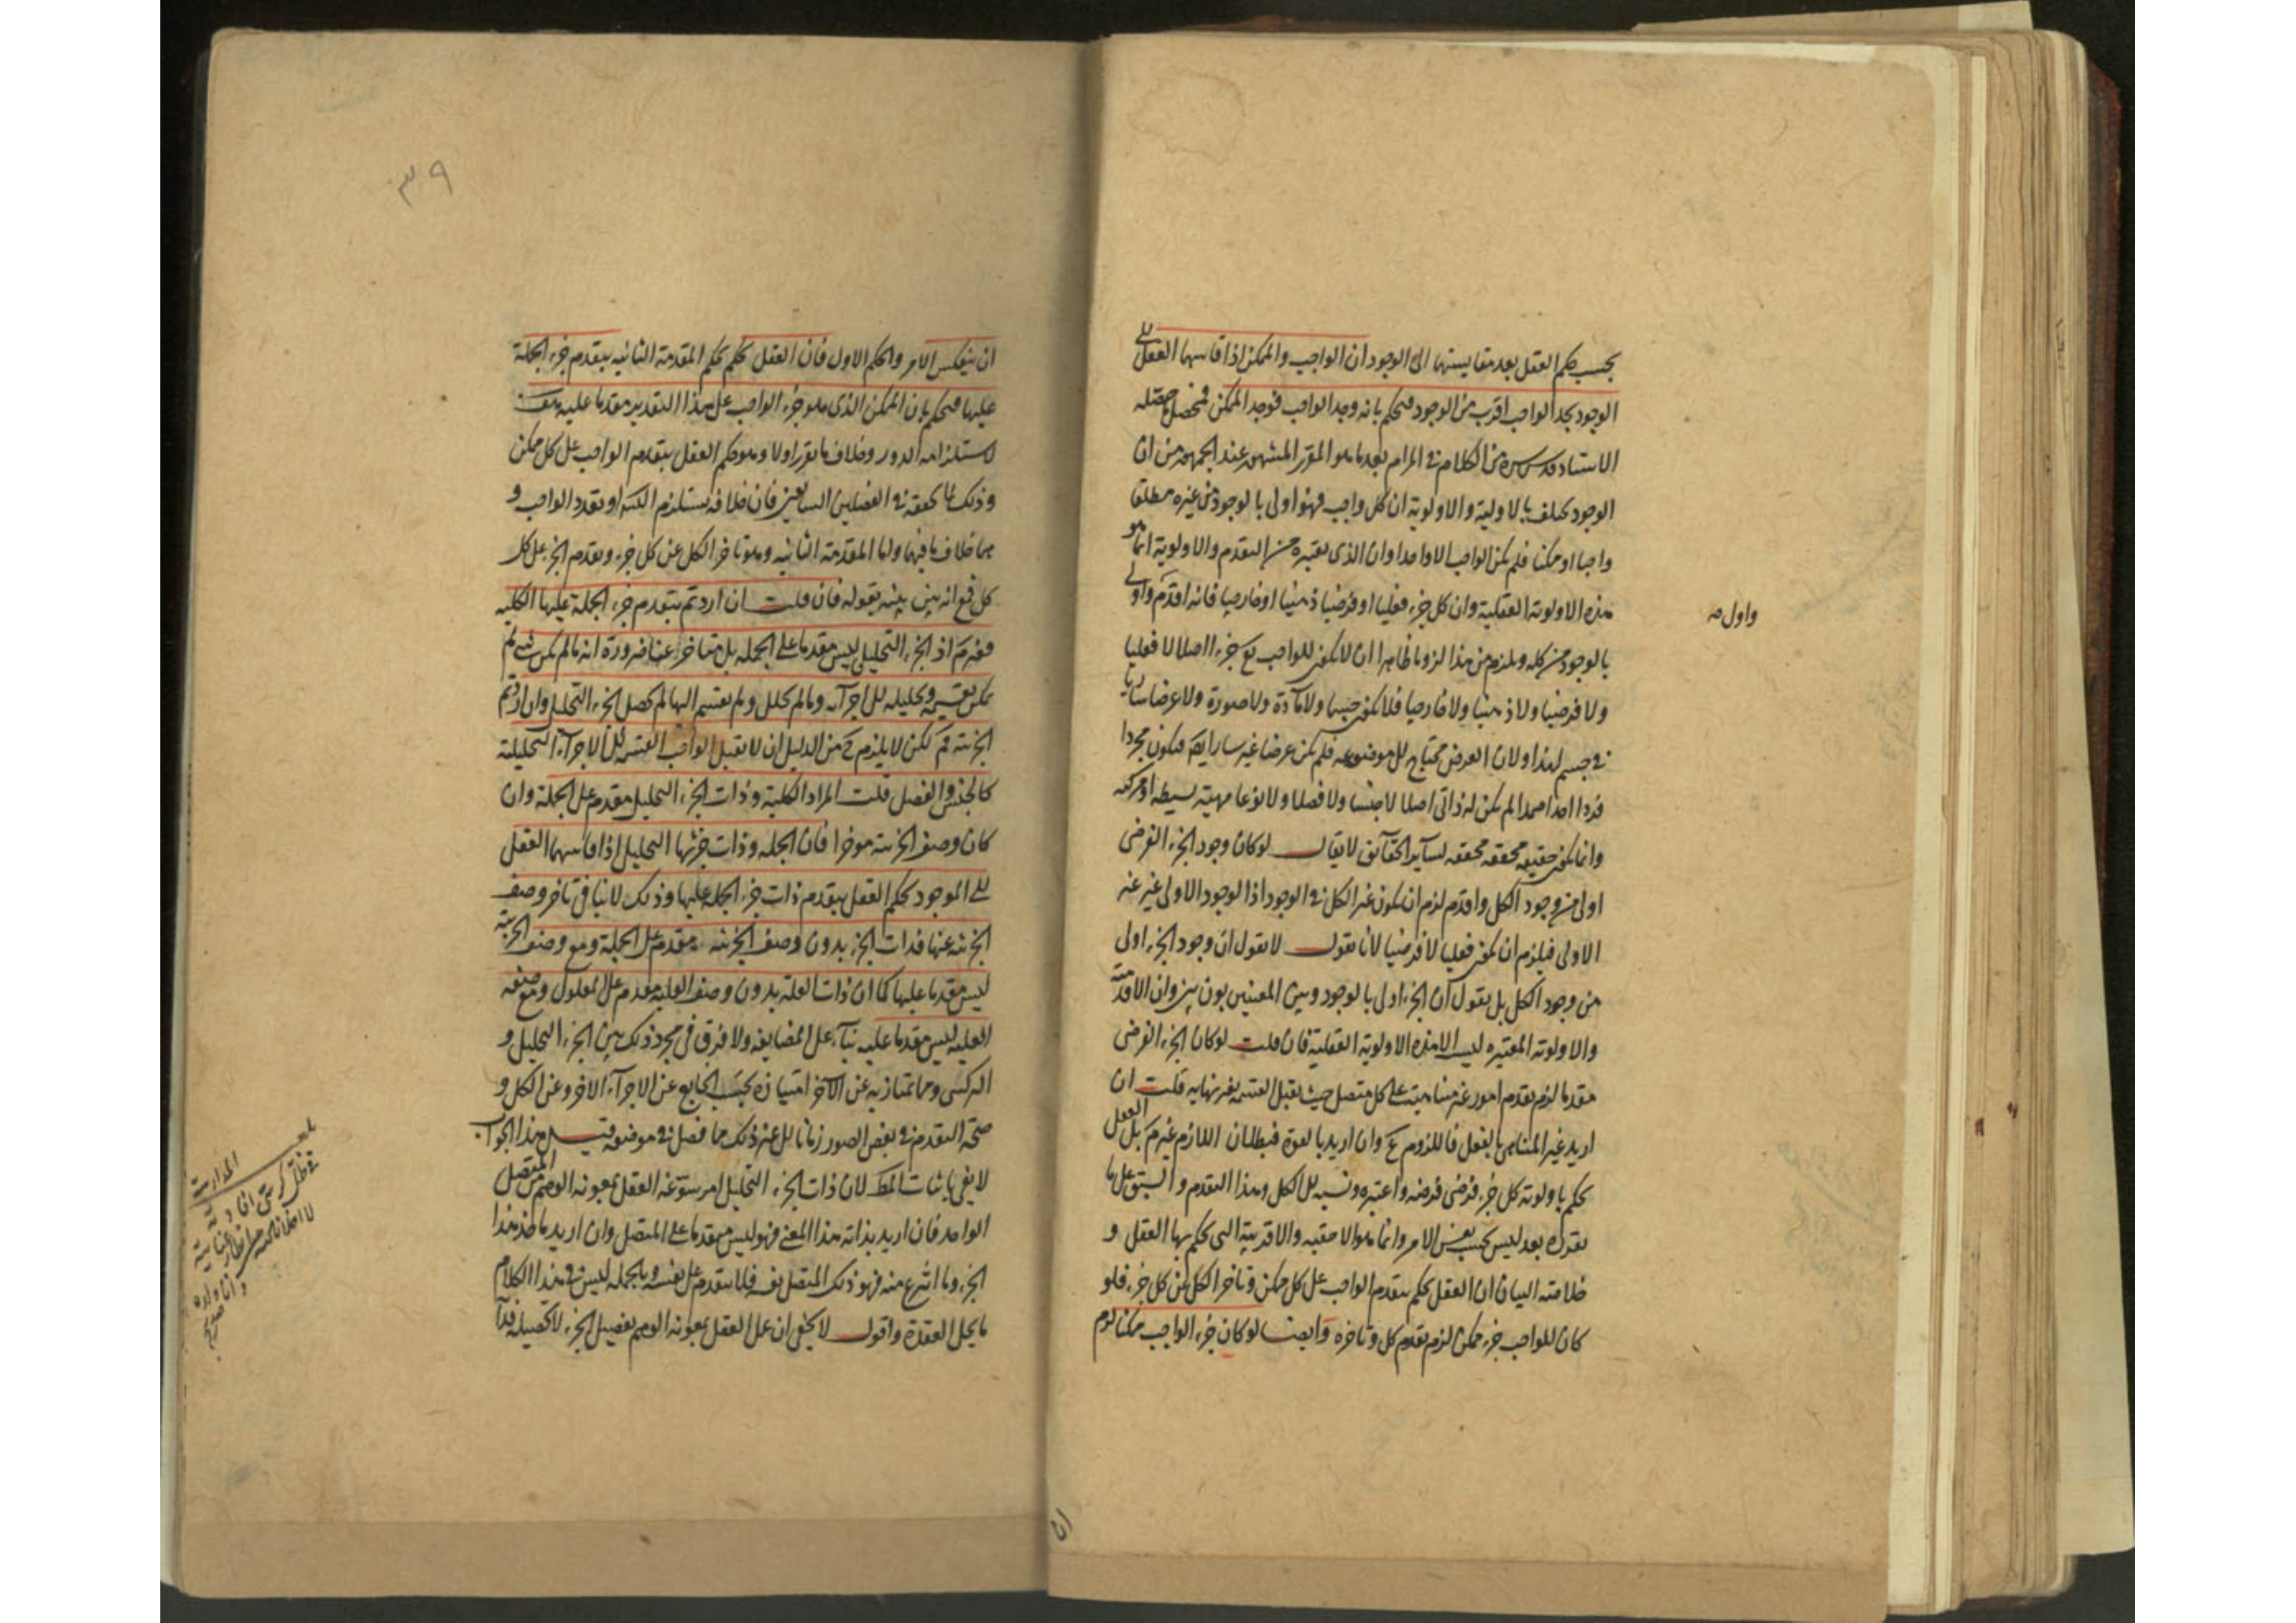 بحسب حكم العقل بعد مقايستهما الى الوجود ان الواجب والممكن اذا قاسهما العقل الى
الوجود يجد الواجب اقرب من الوجود فيحكم بانه وجد الواجب فوجد الممكن فيحصل
الاستاد قدس سره من الكلام في المرام بعد ما هو المقرر المشهور عند الجمهور من ان
الوجود يختلف بالاولية والاولوية ان كل واجب فهو اولى بالوجود من غيره مطلقا
واجبا او ممكنا فلم يكن الواجب الا واحدا وان الذي نعتبره من التقدم والاولوية انما هو
هذه الاولوية العقلية وان كل جزء فعليا او فرضيا ذهنيا او خارجيا فانه اقدم واولى
واول صح
بالوجود من كله ويلزم من هذا لزوما ظاهرا ان لا يكون للواجب تع جزء اصلا لا فعليا
ولا فرضيا ولا ذهنيا ولا خارجيا فلا يكون جسما ولا مادة ولا صورة ولا عرضا ساريا
في جسم لهذا ولان العرض محتاج الى موضوعه فلم يكن عرضا غير سار ايضا فيكون مجردا
فردا احدا صمدا لم يكن له ذاتي اصلا لا جنسا ولا فصلا ولا نوعا مهية بسيطة او مركبة
وانما يكون حقيقة محققة محققة لسائر الحقائق لا يقال لو كان وجود الجزء الفرضي
اولى من وجود الكل واقدم لزم ان يكون غير الكل في الوجود اذ الوجود الاولى غير غير
الاولى فيلزم ان يكون فعليا لا فرضيا لانا نقول لا نقول ان وجود الجزء اولى
من وجود الكل بل نقول ان الجزء اولى بالوجود وبين المعنيين بون بين وان الاقدمية
والاولوية المعتبرة ليست الا هذه الاولوية العقلية فان قلت لو كان الجزء الفرضي
مقدما لزم تقدم امور غير متناهية على كل متصل حيث يقبل القسمة بغير نهاية قلت ان
اريد غير المتناهي بالفعل فاللزوم مم وان اريد بالقوة فبطلان اللازم غير مم بل العقل
يحكم باولوية كل جزء فرضي فرضه واعتبره ونسبه الى الكل وهذا التقدم والسبق على ما
نقرره بعد ليس بحسب نفس الامر وانما هو الاحقية والاقربية التي يحكم بها العقل و
خلاصة البيان ان العقل يحكم بتقدم الواجب على كل ممكن وتاخر الكل عن كل جزء فلو
كان للواجب جزء ممكن لزم تقدم كل وتاخره وايضا لو كان جزء الواجب ممكنا لزم
ان
٣٩
ان ينعكس الامر والحكم الاول فان العقل يحكم بحكم المقدمة الثانية بتقدم جزء الجملة
عليها فيحكم بان الممكن الذي هو جزء الواجب على هذا التقدير مقدما عليه هف
لاستلزامه الدور وخلاف ما تقرر اولا وهو حكم العقل بتقدم الواجب على كل ممكن
وذلك لما تحققه في الفصلين السابقين فان خلافه يستلزم الكثرة او تعدد الواجب و
هما خلاف ما فيهما واما المقدمة الثانية وهو تاخر الكل عن كل جزء وتقدم الجزء على كل
كل فمع انه بين بينه بقوله فان قلت ان اردتم بتقدم جزء الجملة عليها الكلية
فغير مم اذ الجزء التحليلي ليس مقدما على الجملة بل متاخر عنها ضرورة انه ما لم يكن شيء لم
يمكن تقسيمه وتحليله الى اجزائه وما لم يحلل ولم يقسم اليها لم يحصل الجزء التحليلي وان اردتم
الجزئية فمم لكن لا يلزم ح من الدليل ان لا يقبل الواجب القسمة الى الاجزاء التحليلية
كالجنس والفصل قلت المراد الكلية وذات الجزء التحليلي مقدم على الجملة وان
كان وصف الجزئية موخرا فان الجملة وذات جزئها التحليلي اذا قاسهما العقل
الى الموجود يحكم العقل بتقدم ذات جزء الجملة عليها وذلك لا ينافي تاخر وصف
الجزئية عنها فذات الجزء بدون وصف الجزئية مقدم على الجملة ومع وصف الجزئية
ليس مقدما عليها كما ان ذات العلة بدون وصف العلية مقدم على المعلول ومع وصف
العلية ليس مقدما عليه بناء على المضايفة ولا فرق في مجرد ذلك بين الجزء التحليلي و
التركيبي وما يمتاز به عن الآخر امتيازه بحسب الخارج عن الاجزاء الاخر وعن الكل و
صحة التقدم في بعض الصور زمانا الى غير ذلك مما فصل في موضعه قيل هذا الجواب
لا يفي باثبات المط لان ذات الجزء التحليلي امر ينتزعه العقل بمعونة الوهم من المتصل
الواحد فان اريد بذاته هذا المعنى فهو ليس مقدما على المتصل وان اريد ماخذ هذا
الجزء وما انتزع منه فهو ذلك المتصل نفسه فلا يتقدم على نفسه وبالجملة ليس في هذا الكلام
ما يحل العقدة واقول لا يخفى ان عمل العقل بمعونة الوهم تفصيل الجزء لا تحصيله فذا